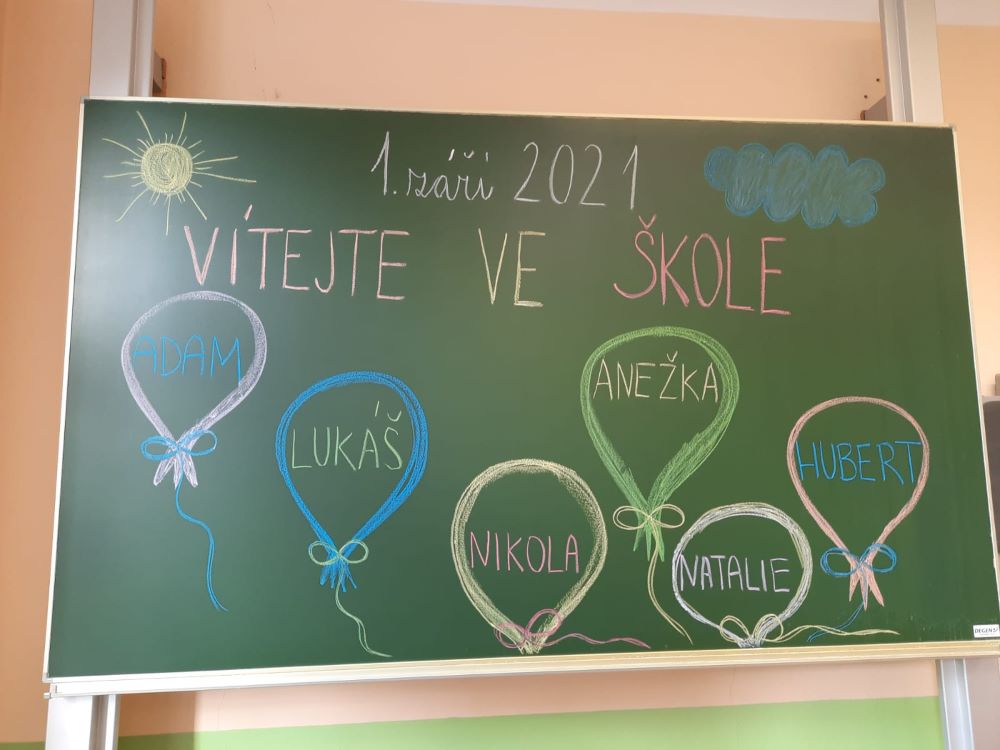 1. září 2021
VÍTEJTE VE ŠKOLE
ADAM
LUKÁŠ
NIKOLA
ANEŽKA
NATALIE
HUBERT